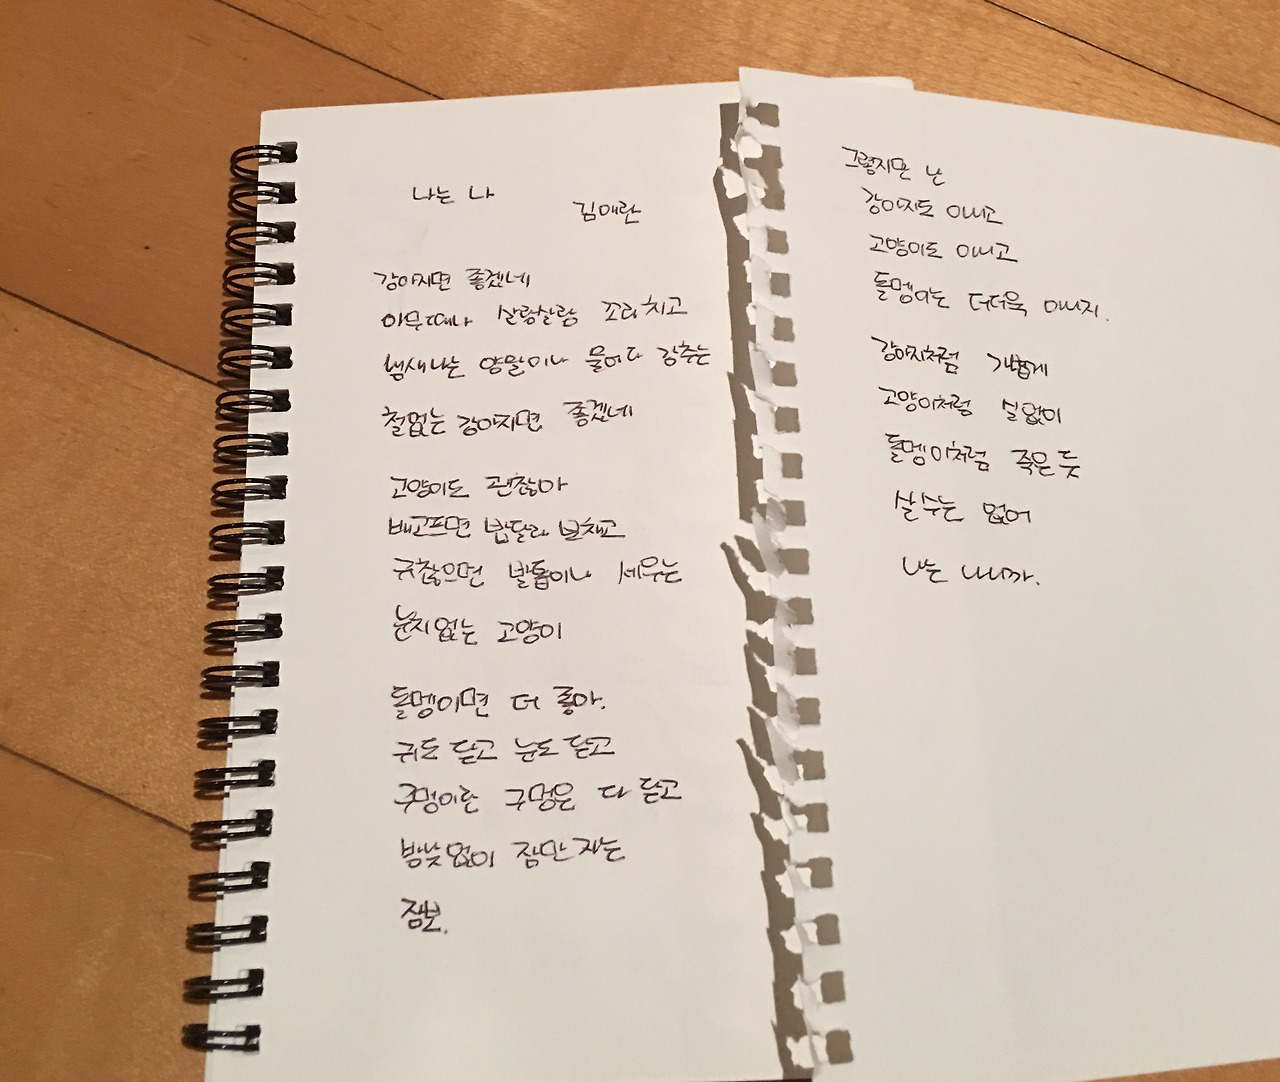 나는 나
김애란
강아지면 좋겠네
아무때나 살랑살랑 꼬리치고
냄새나는 양말이나 물어다 감추는
철없는 강아지면 좋겠네
고양이도 괜찮아
배고프면 밥달라 보채고
귀찮으면 발톱이나 세우는
눈치없는 고양이
돌멩이면 더 좋아.
귀도 닫고 눈도 닫고
구멍이란 구멍은 다 닫고
밤낮없이 잠만 자는
잠보.
그렇지만 난
강아지도 아니고
고양이도 아니고
돌멩이는 더더욱 아니지.
강아지처럼 가볍게
고양이처럼 실없이
돌멩이처럼 죽은듯
살 수는 없어
나는 나니까.